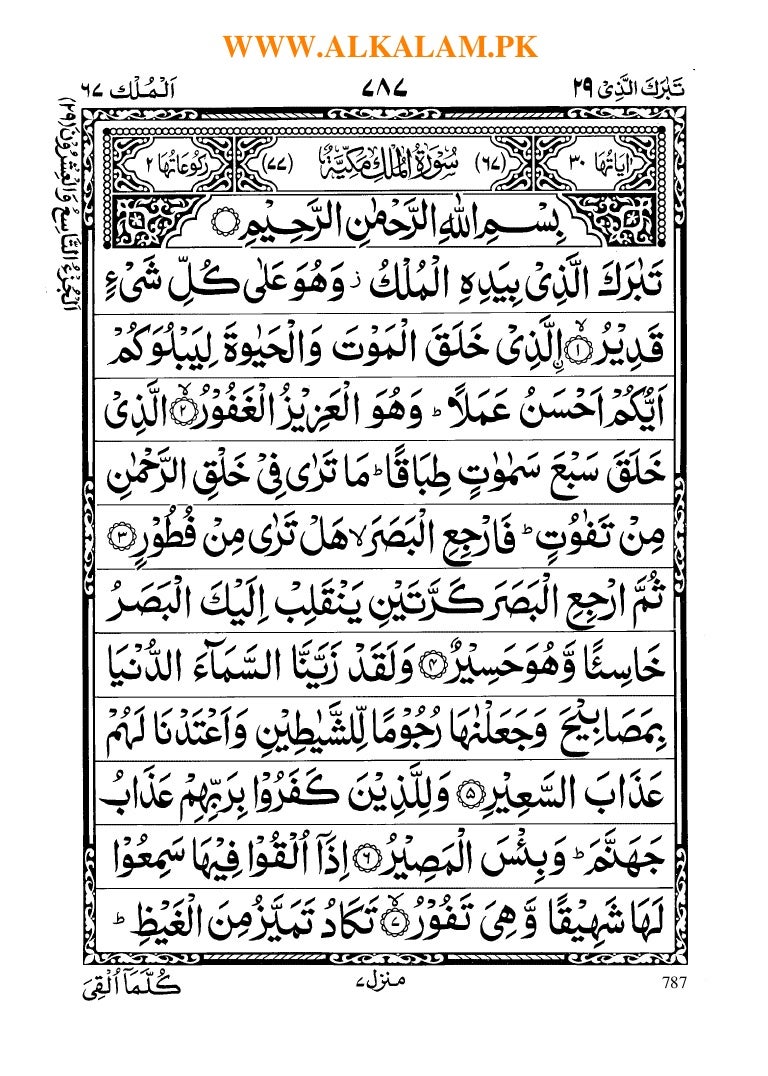 WWW.ALKALAM.PK
تَبٰرَكَ الَّذِیْ ۲۹
۷۸۷
اَلْمُلْك ۶۷
اٰیَاتُهَا ۳۰
(۶۷) سُوْرَةُ الْمُلْكِ مَكِّیَّةٌ (۷۷)
رُكُوْعَاتُهَا ۲
اَلْجُزْءُ التَّاسِعُ وَالْعِشْرُوْنَ (۲۹)
بِسْمِ اللّٰهِ الرَّحْمٰنِ الرَّحِیْمِ ۝
تَبٰرَكَ الَّذِیْ بِیَدِهِ الْمُلْكُ ز وَهُوَ عَلٰی كُلِّ شَیْءٍ
قَدِیْرُ ۝۱ۙ اِلَّذِیْ خَلَقَ الْمَوْتَ وَالْحَیٰوةَ لِیَبْلُوَكُمْ
اَیُّكُمْ اَحْسَنُ عَمَلًا ؕ وَهُوَ الْعَزِیْزُ الْغَفُوْرُ ۝۲ۙ الَّذِیْ
خَلَقَ سَبْعَ سَمٰوٰتٍ طِبَاقًا ؕ مَا تَرٰی فِیْ خَلْقِ الرَّحْمٰنِ
مِنْ تَفٰوُتٍ ؕ فَارْجِعِ الْبَصَرَ ۙ هَلْ تَرٰی مِنْ فُطُوْرٍ ۝۳
ثُمَّ ارْجِعِ الْبَصَرَ كَرَّتَیْنِ یَنْقَلِبْ اِلَیْكَ الْبَصَرُ
خَاسِئًا وَّهُوَ حَسِیْرٌ ۝۴ وَلَقَدْ زَیَّنَّا السَّمَآءَ الدُّنْیَا
بِمَصَابِیْحَ وَجَعَلْنٰهَا رُجُوْمًا لِّلشَّیٰطِیْنِ وَاَعْتَدْنَا لَهُمْ
عَذَابَ السَّعِیْرِ ۝۵ وَلِلَّذِیْنَ كَفَرُوْا بِرَبِّهِمْ عَذَابُ
جَهَنَّمَ ؕ وَبِئْسَ الْمَصِیْرُ ۝۶ اِذَاۤ اُلْقُوْا فِیْهَا سَمِعُوْا
لَهَا شَهِیْقًا وَّهِیَ تَفُوْرُ ۝۷ۙ تَكَادُ تَمَیَّزُ مِنَ الْغَیْظِ ؕ
787
منزل ۷
كُلَّمَاۤ اُلْقِیَ